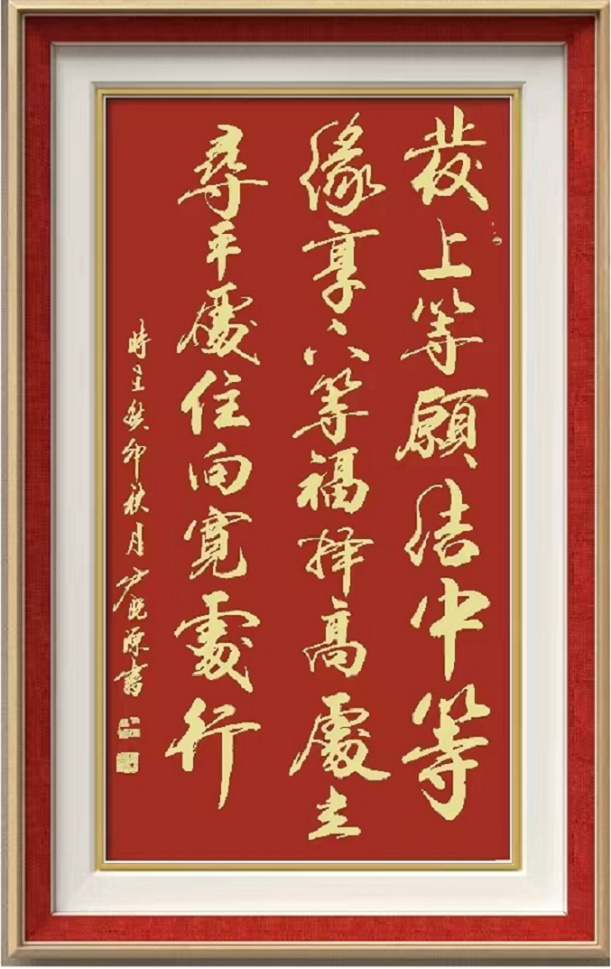 發上等願結中等
緣享下等福擇高處立
尋平處住向寬處行
時呈癸卯秋月尹曉源書